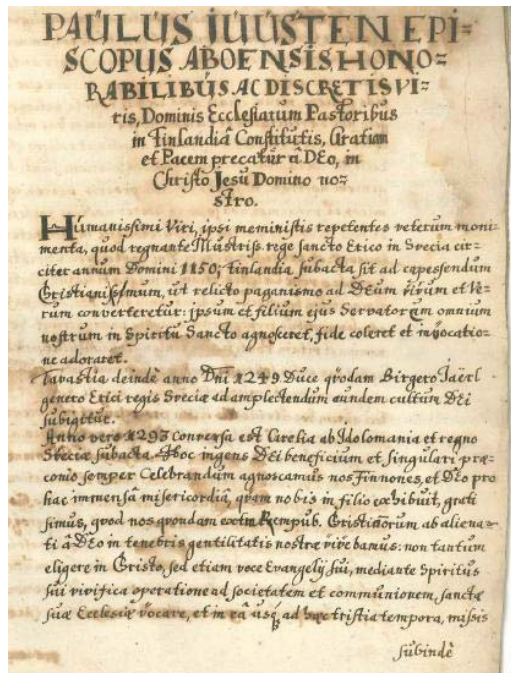 PAULUS IUUSTEN EPI=
SCOPUS ABOENSIS HONO=
RABILIBUS AC DISCRETIS VI=
ris, Dominis Ecclesiarum Pastoribus
in Finlandiâ Constitutis, Gratiam
et Pacem precatur â DEo, in
Christo Jesu Domino no=
stro.
Humanissimi Viri, ipsi meministis repetentes veterum moni=
menta, quod regnante Illustriss. rege sancto Erico in Svecia cir=
citer annum Domini 1150; Finlandia subacta sit ad capessendum
Cristianissmum, ut relicto paganismo ad DEum vivum et ve=
rum converteretur: ipsum et filium ejus Servatorem omnium
nostrum in Spiritu Sancto agnosceret, fide coleret et invocatio=
ne adoraret.
Tavastia deindè anno Dni 1249 Duce qvodam Birgero Jaërl
genero Erici regis Sveciæ ad amplectendum eundem cultum DEi
subigitur.
Anno vero 1293 conversa est Carelia ab Idolomania et regno
Sveciæ subacta. Hoc ingens DEi beneficium et singulari præ=
conio semper Celebrandum agnoscamus nos Finnones, et DEo pro
hac immensâ misericordiâ, qvam nobis in filio exhibuit, grati
simus, qvod nos qvondam extra Rempub. Cristianorum ab aliena=
ti â DEo in tenebris gentilitatis nostræ vivebamus: non tantum
eligere in Cristo, sed etiam voce Evangelij sui, mediante Spiritus
sui vivifica operatione ad societatem et communionem, sanctæ
suæ Ecclesiæ vocare, et in eâ usq; ad hæc tristia tempora, missis
subindè